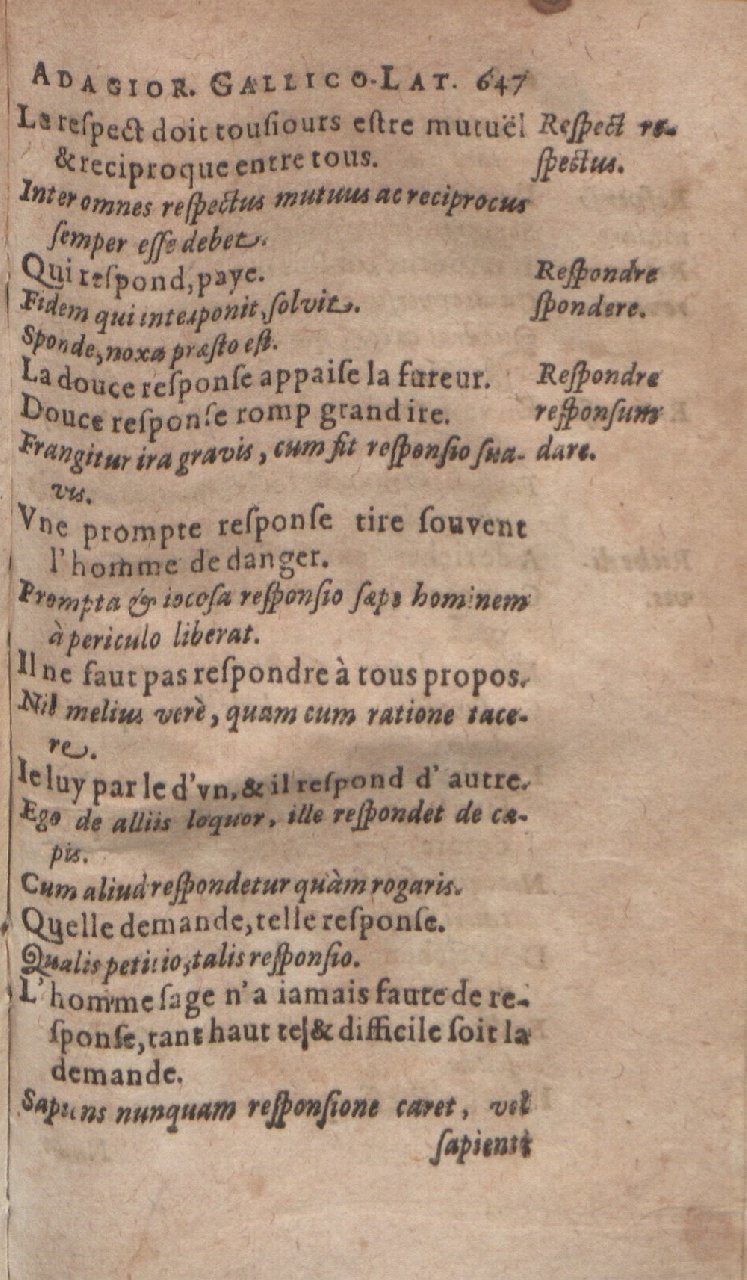 ADAGIOR. GALLICO-LAT. 647
Le respect doit tousiours estre mutuël
& reciproque entre tous.
Respect re-
spectus.
Inter omnes respectus mutuus ac reciprocus
semper esse debet.
Qui respond, paye.
Respondre
spondere.
Fidem qui interponit, solvit.
Sponde, noxa præsto est.
La douce response appaise la fureur.
Respondre
responsum
dare.
Douce response romp grand ire.
Frangitur ira gravis, cum fit responsio sua-
vis.
Vne prompte response tire souvent
l'homme de danger.
Prompta & iocosa responsio sæpe hominem
à periculo liberat.
Il ne faut pas respondre à tous propos.
Nil melius verè, quam cum ratione tace-
re.
Ie luy parle d'vn, & il respond d'autre.
Ego de alliis loquor, ille respondet de cæ-
pis.
Cum aliud respondetur quàm rogaris.
Quelle demande, telle response.
Qualis petitio, talis responsio.
L'homme sage n'a iamais faute de re-
sponse, tant haute & difficile soit la
demande.
Sapiens nunquam responsione caret, vel
sapienti